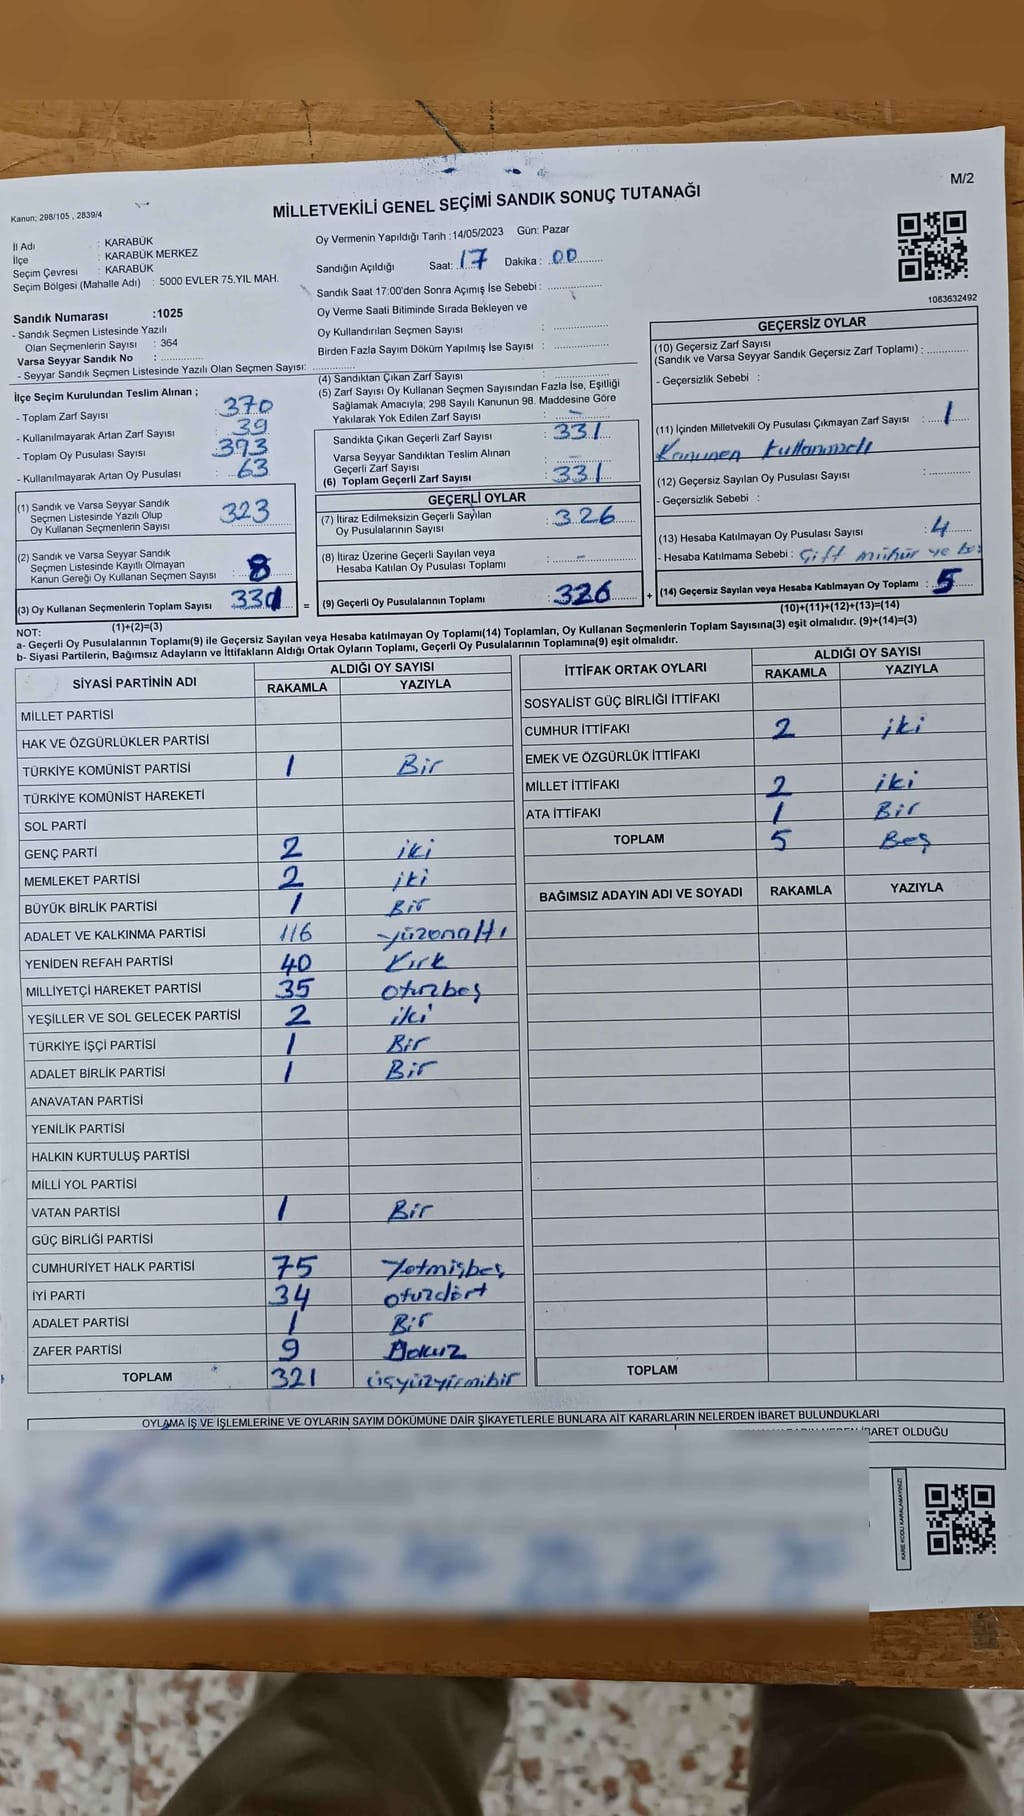 M/2
Kanun; 298/105 , 2839/4
MİLLETVEKİLİ GENEL SEÇİMİ SANDIK SONUÇ TUTANAĞI
İl Adı : KARABÜK
İlçe : KARABÜK MERKEZ
Seçim Çevresi : KARABÜK
Seçim Bölgesi (Mahalle Adı) : 5000 EVLER 75.YIL MAH.
Sandık Numarası :1025
- Sandık Seçmen Listesinde Yazılı
Olan Seçmenlerin Sayısı : 364
Varsa Seyyar Sandık No :
- Seyyar Sandık Seçmen Listesinde Yazılı Olan Seçmen Sayısı:
Oy Vermenin Yapıldığı Tarih :14/05/2023 Gün: Pazar
Sandığın Açıldığı Saat: 17 Dakika : 00
Sandık Saat 17:00'den Sonra Açımış İse Sebebi :
Oy Verme Saati Bitiminde Sırada Bekleyen ve
Oy Kullandırılan Seçmen Sayısı :
Birden Fazla Sayım Döküm Yapılmış İse Sayısı :
1083632492
İlçe Seçim Kurulundan Teslim Alınan ;
- Toplam Zarf Sayısı : 370
- Kullanılmayarak Artan Zarf Sayısı : 39
- Toplam Oy Pusulası Sayısı : 393
- Kullanılmayarak Artan Oy Pusulası : 63
(1) Sandık ve Varsa Seyyar Sandık
Seçmen Listesinde Yazılı Olup
Oy Kullanan Seçmenlerin Sayısı : 323
(2) Sandık ve Varsa Seyyar Sandık
Seçmen Listesinde Kayıtlı Olmayan
Kanun Gereği Oy Kullanan Seçmen Sayısı : 8
(3) Oy Kullanan Seçmenlerin Toplam Sayısı : 331
(1)+(2)=(3)
(4) Sandıktan Çıkan Zarf Sayısı :
(5) Zarf Sayısı Oy Kullanan Seçmen Sayısından Fazla İse, Eşitliği
Sağlamak Amacıyla; 298 Sayılı Kanunun 98. Maddesine Göre
Yakılarak Yok Edilen Zarf Sayısı : -
Sandıkta Çıkan Geçerli Zarf Sayısı : 331
Varsa Seyyar Sandıktan Teslim Alınan
Geçerli Zarf Sayısı : -
(6) Toplam Geçerli Zarf Sayısı : 331
GEÇERLİ OYLAR
(7) İtiraz Edilmeksizin Geçerli Sayılan
Oy Pusulalarının Sayısı : 326
(8) İtiraz Üzerine Geçerli Sayılan veya
Hesaba Katılan Oy Pusulası Toplamı : -
= (9) Geçerli Oy Pusulalarının Toplamı : 326 +
GEÇERSİZ OYLAR
(10) Geçersiz Zarf Sayısı
(Sandık ve Varsa Seyyar Sandık Geçersiz Zarf Toplamı) :
- Geçersizlik Sebebi :
(11) İçinden Milletvekili Oy Pusulası Çıkmayan Zarf Sayısı : 1
Kanunen kullanmadı
(12) Geçersiz Sayılan Oy Pusulası Sayısı :
- Geçersizlik Sebebi :
(13) Hesaba Katılmayan Oy Pusulası Sayısı : 4
- Hesaba Katılmama Sebebi : Çift mühür ve
(14) Geçersiz Sayılan veya Hesaba Katılmayan Oy Toplamı : 5
(10)+(11)+(12)+(13)=(14)
NOT:
a- Geçerli Oy Pusulalarının Toplamı(9) ile Geçersiz Sayılan veya Hesaba katılmayan Oy Toplamı(14) Toplamları, Oy Kullanan Seçmenlerin Toplam Sayısına(3) eşit olmalıdır. (9)+(14)=(3)
b- Siyasi Partilerin, Bağımsız Adayların ve İttifakların Aldığı Ortak Oyların Toplamı, Geçerli Oy Pusulalarının Toplamına(9) eşit olmalıdır.
SİYASİ PARTİNİN ADI ALDIĞI OY SAYISI
RAKAMLA YAZIYLA
MİLLET PARTİSİ
HAK VE ÖZGÜRLÜKLER PARTİSİ
TÜRKİYE KOMÜNİST PARTİSİ 1 Bir
TÜRKİYE KOMÜNİST HAREKETİ
SOL PARTİ
GENÇ PARTİ 2 iki
MEMLEKET PARTİSİ 2 iki
BÜYÜK BİRLİK PARTİSİ 1 Bir
ADALET VE KALKINMA PARTİSİ 116 yüzonaltı
YENİDEN REFAH PARTİSİ 40 Kırk
MİLLİYETÇİ HAREKET PARTİSİ 35 otuzbeş
YEŞİLLER VE SOL GELECEK PARTİSİ 2 iki
TÜRKİYE İŞÇİ PARTİSİ 1 Bir
ADALET BİRLİK PARTİSİ 1 Bir
ANAVATAN PARTİSİ
YENİLİK PARTİSİ
HALKIN KURTULUŞ PARTİSİ
MİLLİ YOL PARTİSİ
VATAN PARTİSİ 1 Bir
GÜÇ BİRLİĞİ PARTİSİ
CUMHURİYET HALK PARTİSİ 75 Yetmişbeş
İYİ PARTİ 34 otuzdört
ADALET PARTİSİ 1 Bir
ZAFER PARTİSİ 9 Dokuz
TOPLAM 321 üçyüzyirmibir
İTTİFAK ORTAK OYLARI ALDIĞI OY SAYISI
RAKAMLA YAZIYLA
SOSYALİST GÜÇ BİRLİĞİ İTTİFAKI
CUMHUR İTTİFAKI 2 iki
EMEK VE ÖZGÜRLÜK İTTİFAKI
MİLLET İTTİFAKI 2 iki
ATA İTTİFAKI 1 Bir
TOPLAM 5 Beş
BAĞIMSIZ ADAYIN ADI VE SOYADI RAKAMLA YAZIYLA
TOPLAM
OYLAMA İŞ VE İŞLEMLERİNE VE OYLARIN SAYIM DÖKÜMÜNE DAİR ŞİKAYETLERLE BUNLARA AİT KARARLARIN NELERDEN İBARET BULUNDUKLARI
İBARET OLDUĞU
KARE KODU KARALAMAYINIZ!